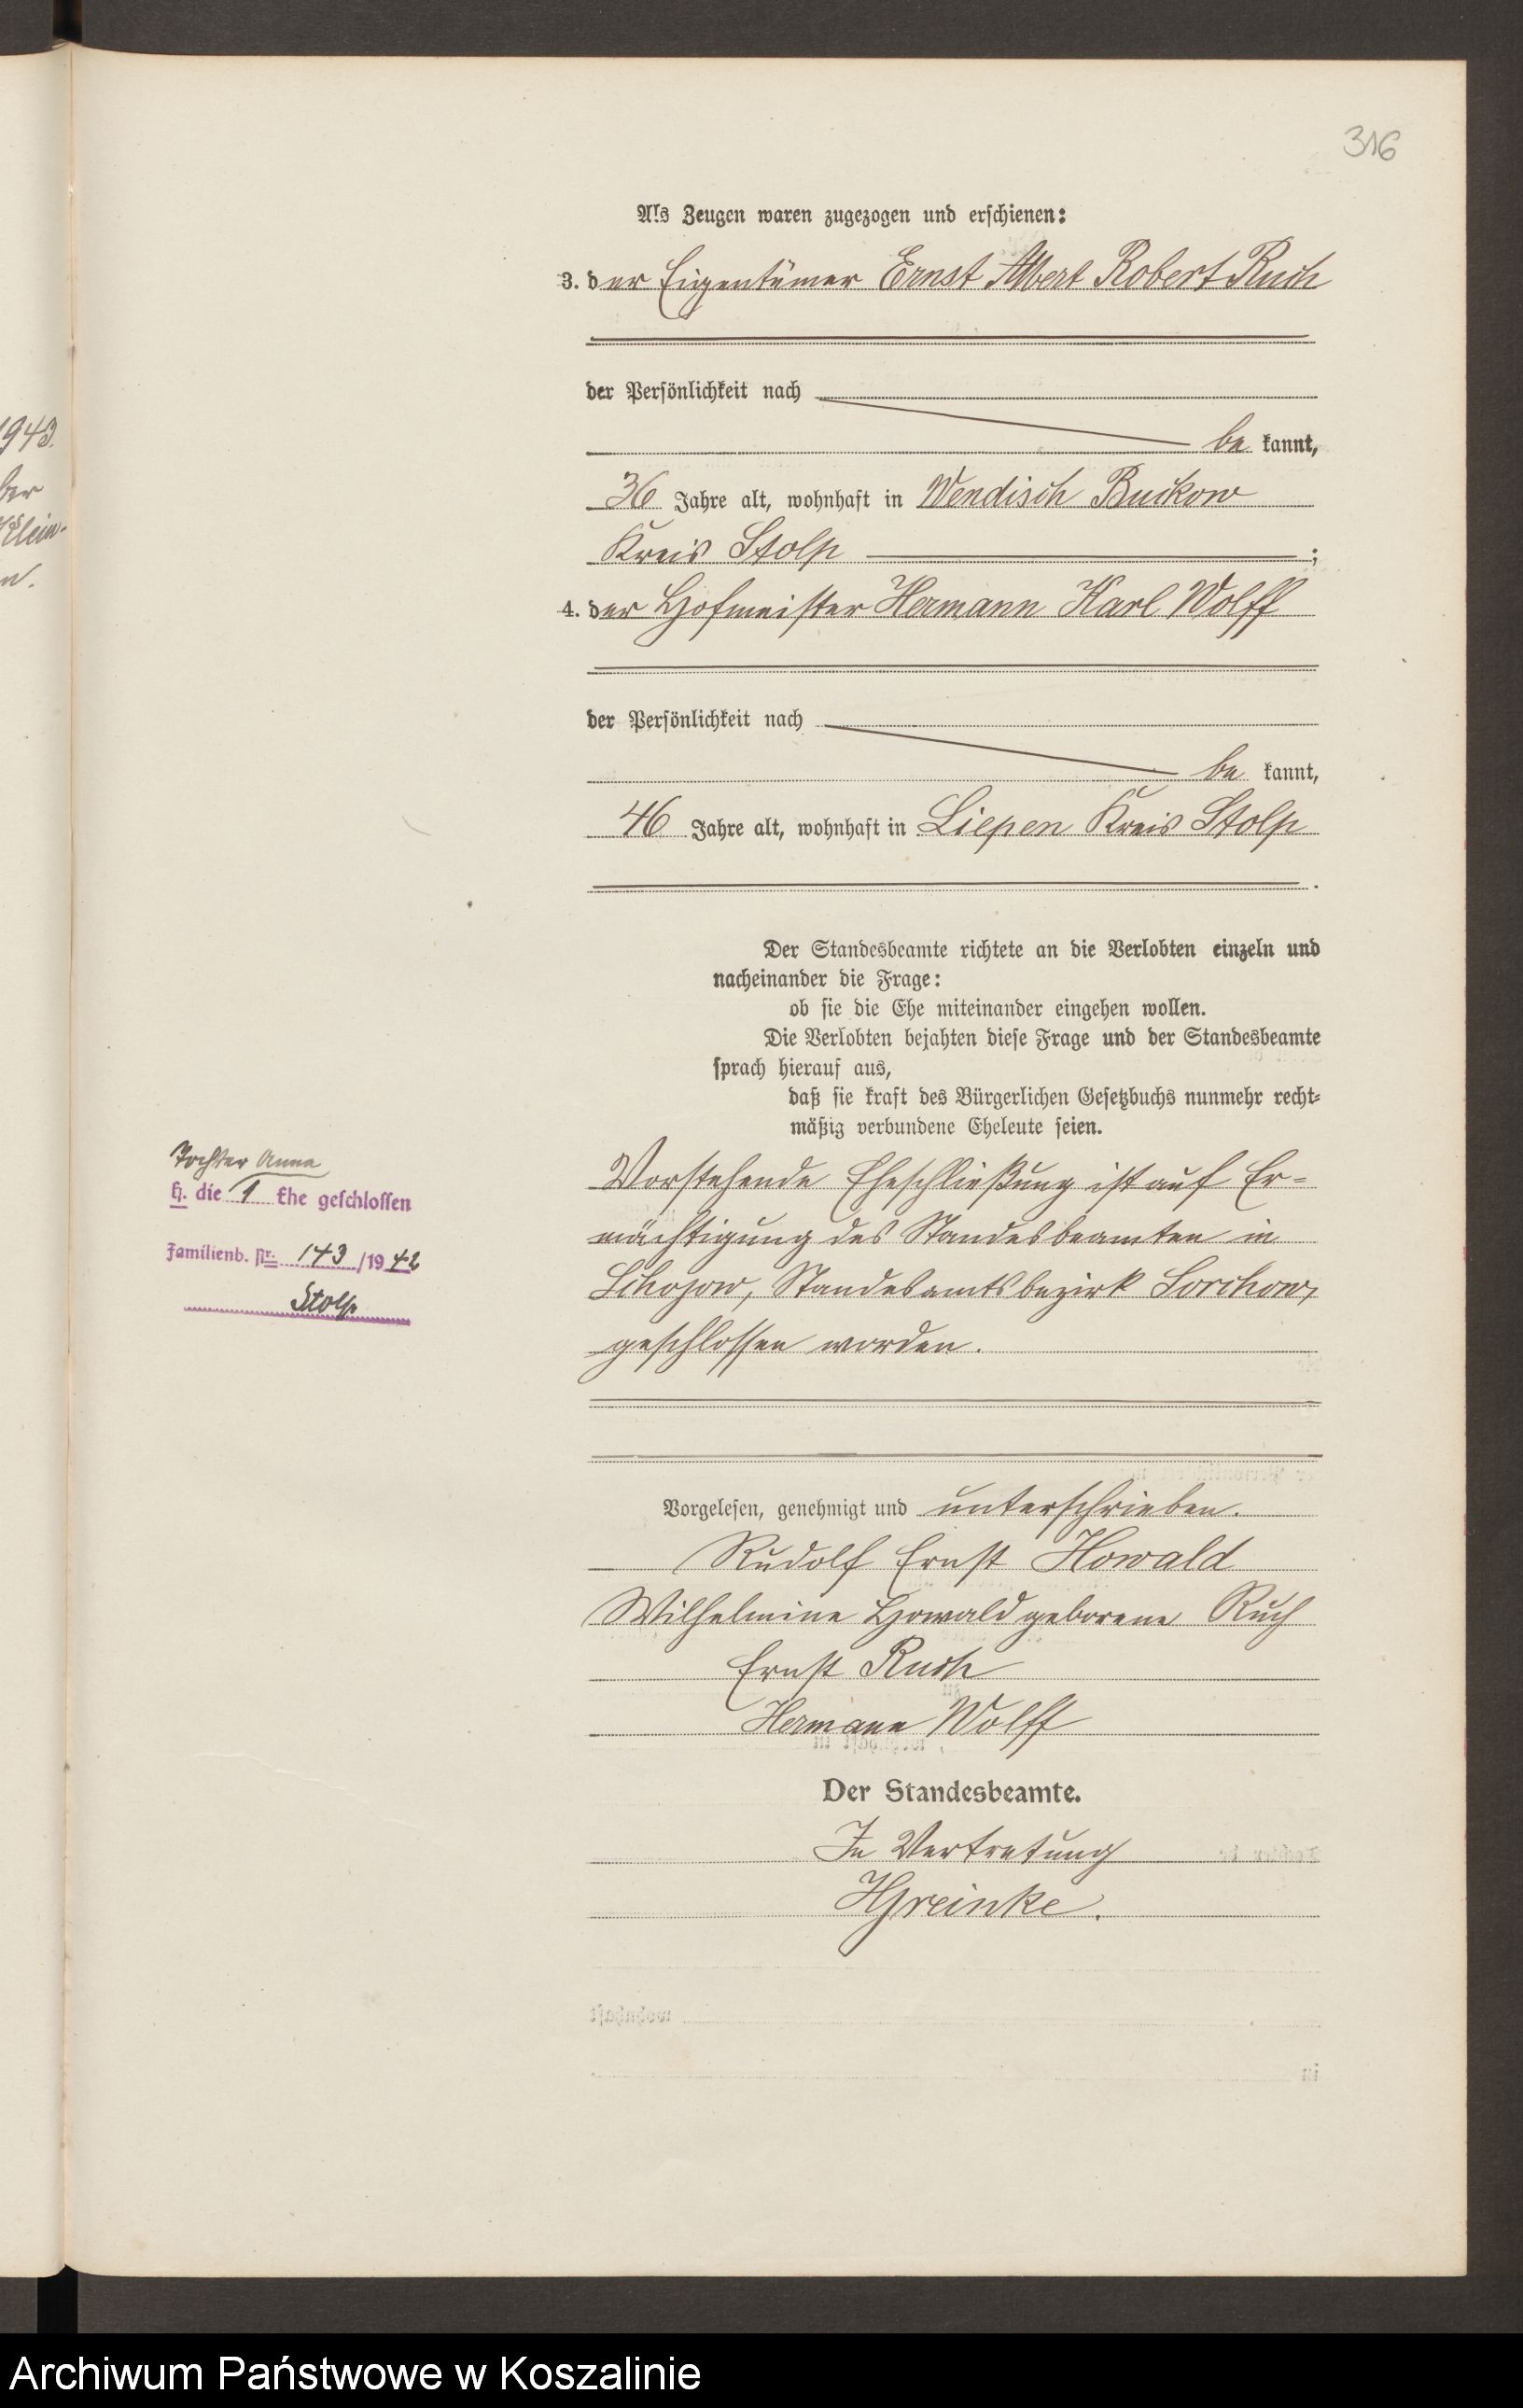 316
Als Zeugen waren zugezogen und erschienen:
3. der Eigentümer Ernst Albert Robert Ruch
der Persönlichkeit nach
be kannt,
36 Jahre alt, wohnhaft in Wendisch Buckow
Kreis Stolp ;
4. der Hofmeister Hermann Karl Wolff
der Persönlichkeit nach
be kannt,
46 Jahre alt, wohnhaft in Liepen Kreis Stolp
.
Der Standesbeamte richtete an die Verlobten einzeln und
nacheinander die Frage:
ob sie die Ehe miteinander eingehen wollen.
Die Verlobten bejahten diese Frage und der Standesbeamte
sprach hierauf aus,
daß sie kraft des Bürgerlichen Gesetzbuchs nunmehr recht-
mäßig verbundene Eheleute seien.
Vorstehende Eheschließung ist auf Er-
mächtigung des Standesbeamten in
Schojow, Standesamtsbezirk Sorchow,
geschlossen worden.
Vorgelesen, genehmigt und unterschrieben.
Rudolf Ernst Howald
Wilhelmine Howald geborene Ruch
Ernst Ruch
Hermann Wolff
Der Standesbeamte.
In Vertretung
HGreinke.
Tochter Anna
H. die 1 Ehe geschlossen
Familienb. Nr. 143 /1942
Stolp
1943.
Klein-
Archiwum Państwowe w Koszalinie